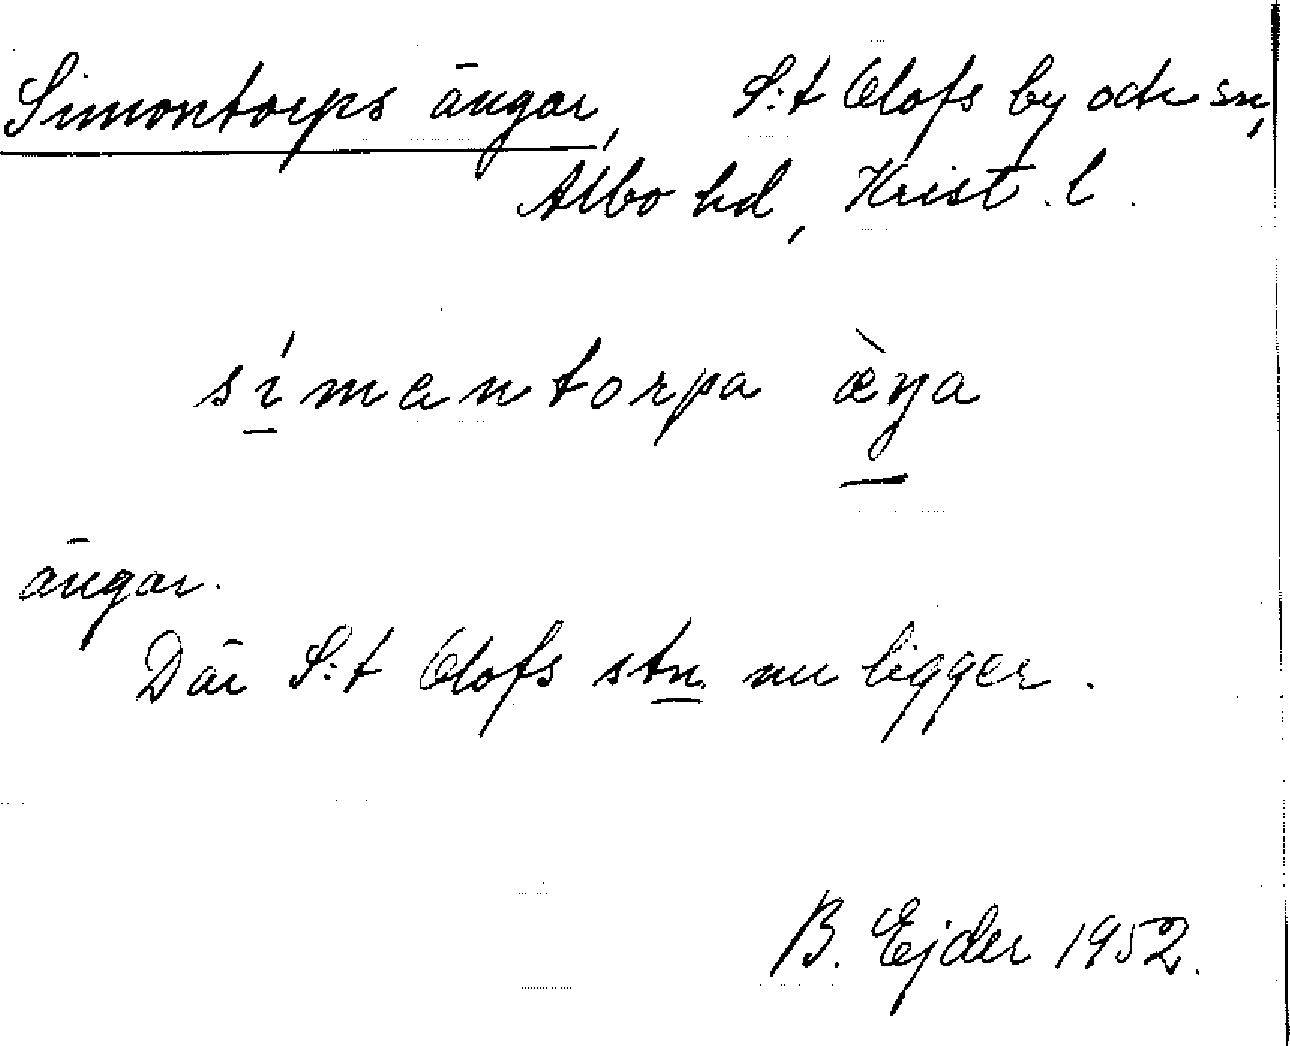 Simontorps ängar, S:t Olofs by och sn,
Albo hd, Krist. l.
símantorpa æ̀ŋa
ängar.
Där S:t Olofs stn. nu ligger.
B. Ejder 1952.